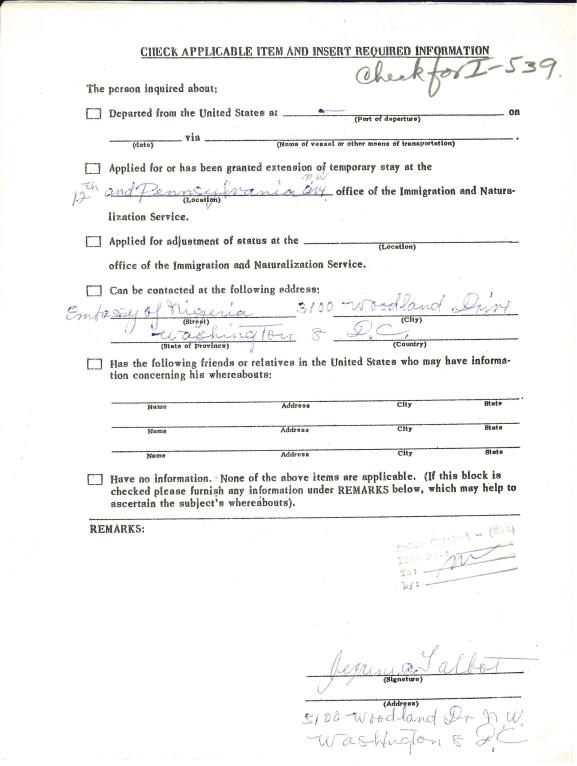 CHECK APPLICABLE ITEM AND INSERT REQUIRED INFORMATION
Check for I-539.
The person inquired about:
Departed from the United States at on
(Port of departure)
via .
(date) (Name of vessel or other means of transportation)
Applied for or has been granted extension of temporary stay at the
N.W
12th and Pennsylvania Av. office of the Immigration and Natura-
(Location)
lization Service.
Applied for adjustment of status at the
(Location)
office of the Immigration and Naturalization Service.
Can be contacted at the following address:
Embassy of Nigeria 3100 Woodland Drive
(Street) (City)
Washington 8 D.C.
(State of Province) (Country)
Has the following friends or relatives in the United States who may have informa-
tion concerning his whereabouts:
Name Address City State
Name Address City State
Name Address City State
Have no information. None of the above items are applicable. (If this block is
checked please furnish any information under REMARKS below, which may help to
ascertain the subject's whereabouts).
REMARKS:
To:
By:
Talbot
(Signature)
(Address)
3100 Woodland Dr N.W.
Washington 8 D.C